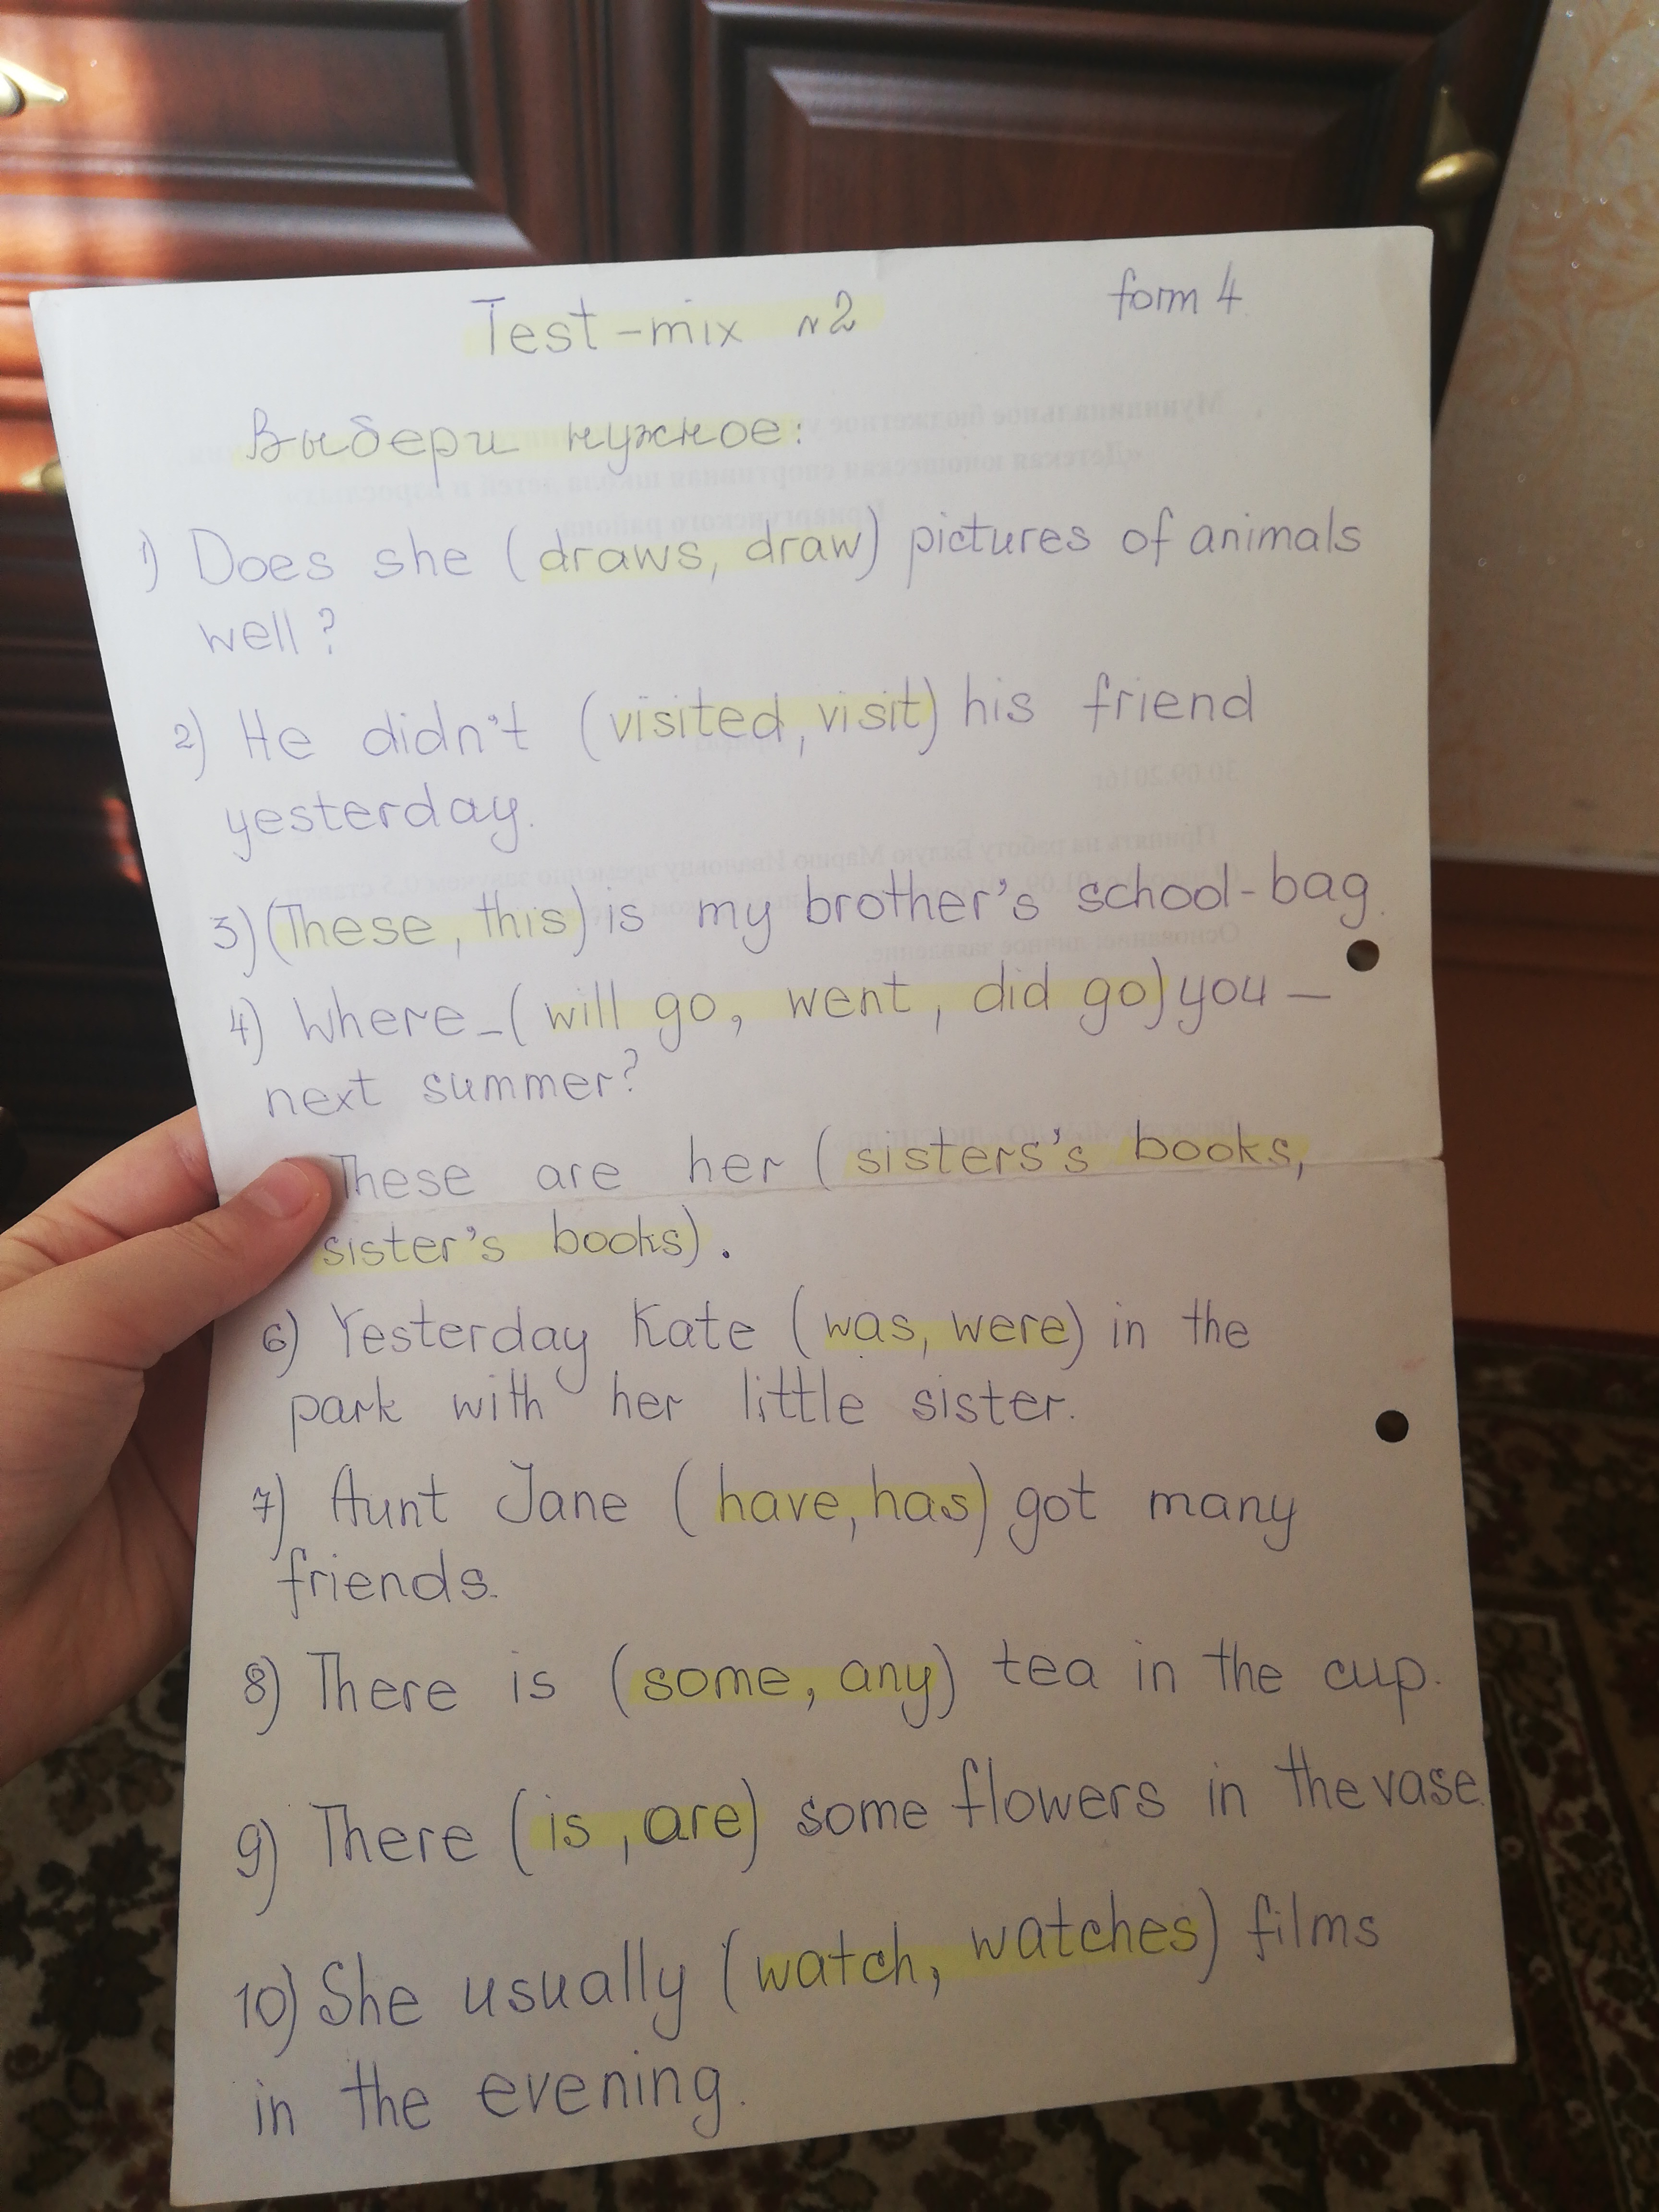 Test-mix №2
form 4
Выбери нужное:
1) Does she (draws, draw) pictures of animals
well?
2) He didn't (visited, visit) his friend
yesterday.
3) (These, this) is my brother's school-bag.
4) Where _ (will go, went, did go) you _
next summer?
These are her (sisters's books,
sister's books).
6) Yesterday Kate (was, were) in the
park with her little sister.
7) Aunt Jane (have, has) got many
friends.
8) There is (some, any) tea in the cup.
9) There (is, are) some flowers in the vase.
10) She usually (watch, watches) films
in the evening.